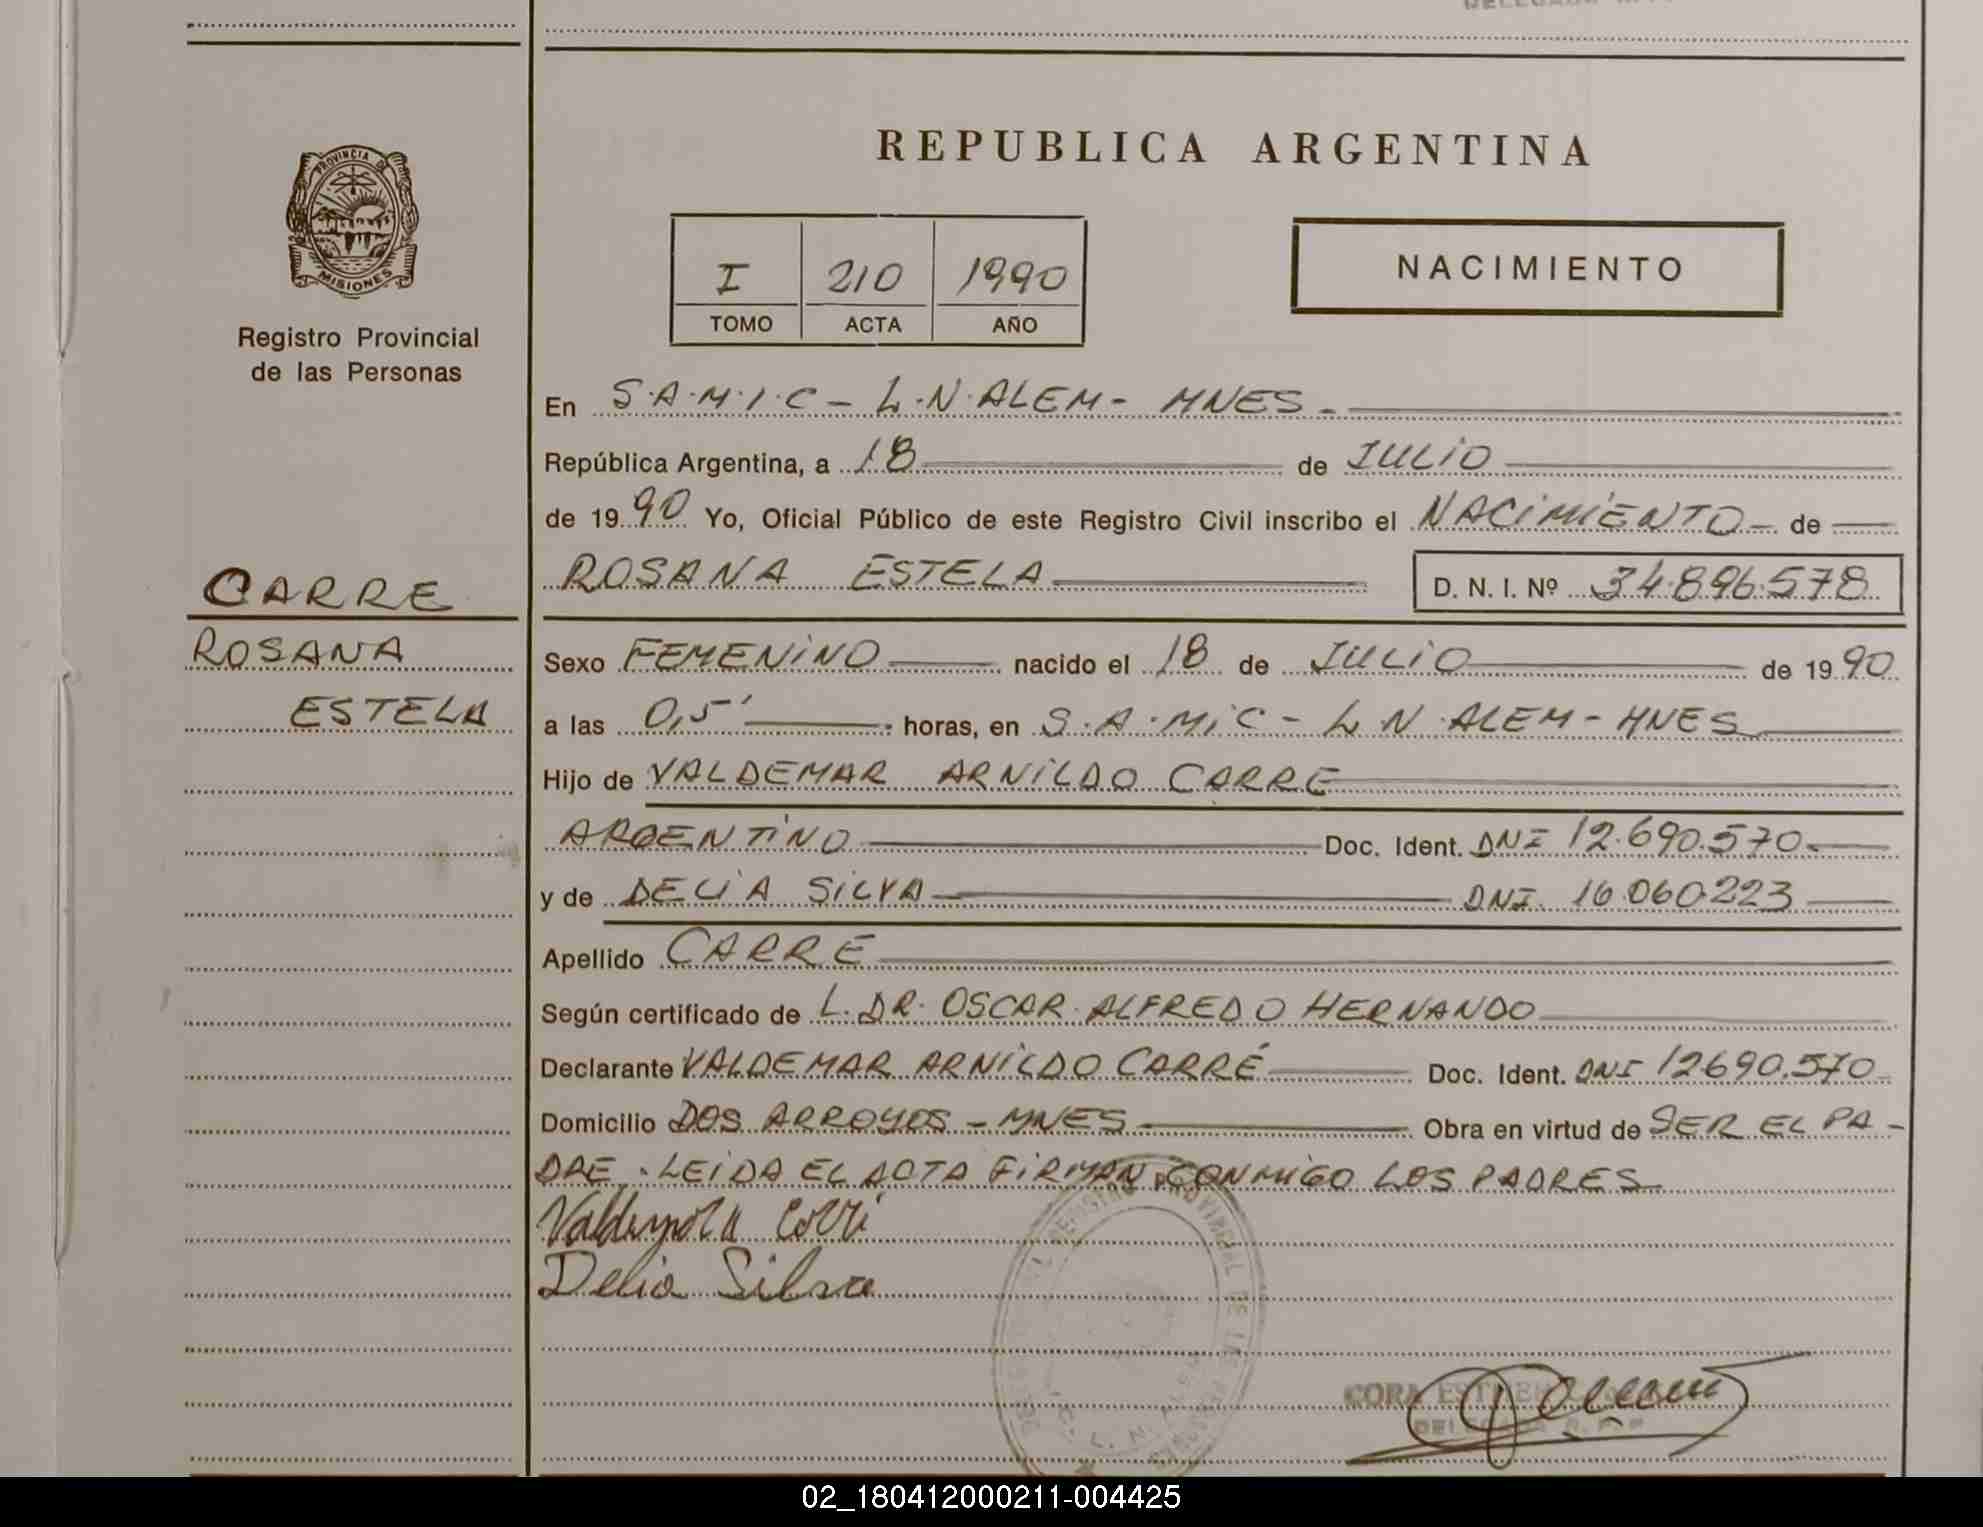 REPUBLICA ARGENTINA
PROVINCIA DE
MISIONES
Registro Provincial
de las Personas
I 210 1990
TOMO ACTA AÑO
NACIMIENTO
En S.A.M.I.C - L.N.ALEM - MNES -
República Argentina, a 18 de JULIO
de 1990 Yo, Oficial Público de este Registro Civil inscribo el NACIMIENTO - de
ROSANA ESTELA D. N. I. Nº 34.896.578
CARRE
ROSANA
ESTELA
Sexo FEMENINO nacido el 18 de JULIO de 1990
a las 0,5' horas, en S.A.MIC - L N.ALEM - MNES
Hijo de VALDEMAR ARNILDO CARRE
ARGENTINO Doc. Ident. DNI 12.690.570
y de DELIA SILVA DNI. 16.060.223
Apellido CARRE
Según certificado de L. DR. OSCAR ALFREDO HERNANDO
Declarante VALDEMAR ARNILDO CARRÉ Doc. Ident. DNI 12690.570
Domicilio DOS ARROYOS - MNES Obra en virtud de SER EL PA-
DRE. LEIDA EL ACTA FIRMAN CONMIGO LOS PADRES
Delia Silva
REGISTRO PROVINCIAL DE LAS PERSONAS
L. N. ALEM
CORA
DELEGADA R.P.P
02_180412000211-004425